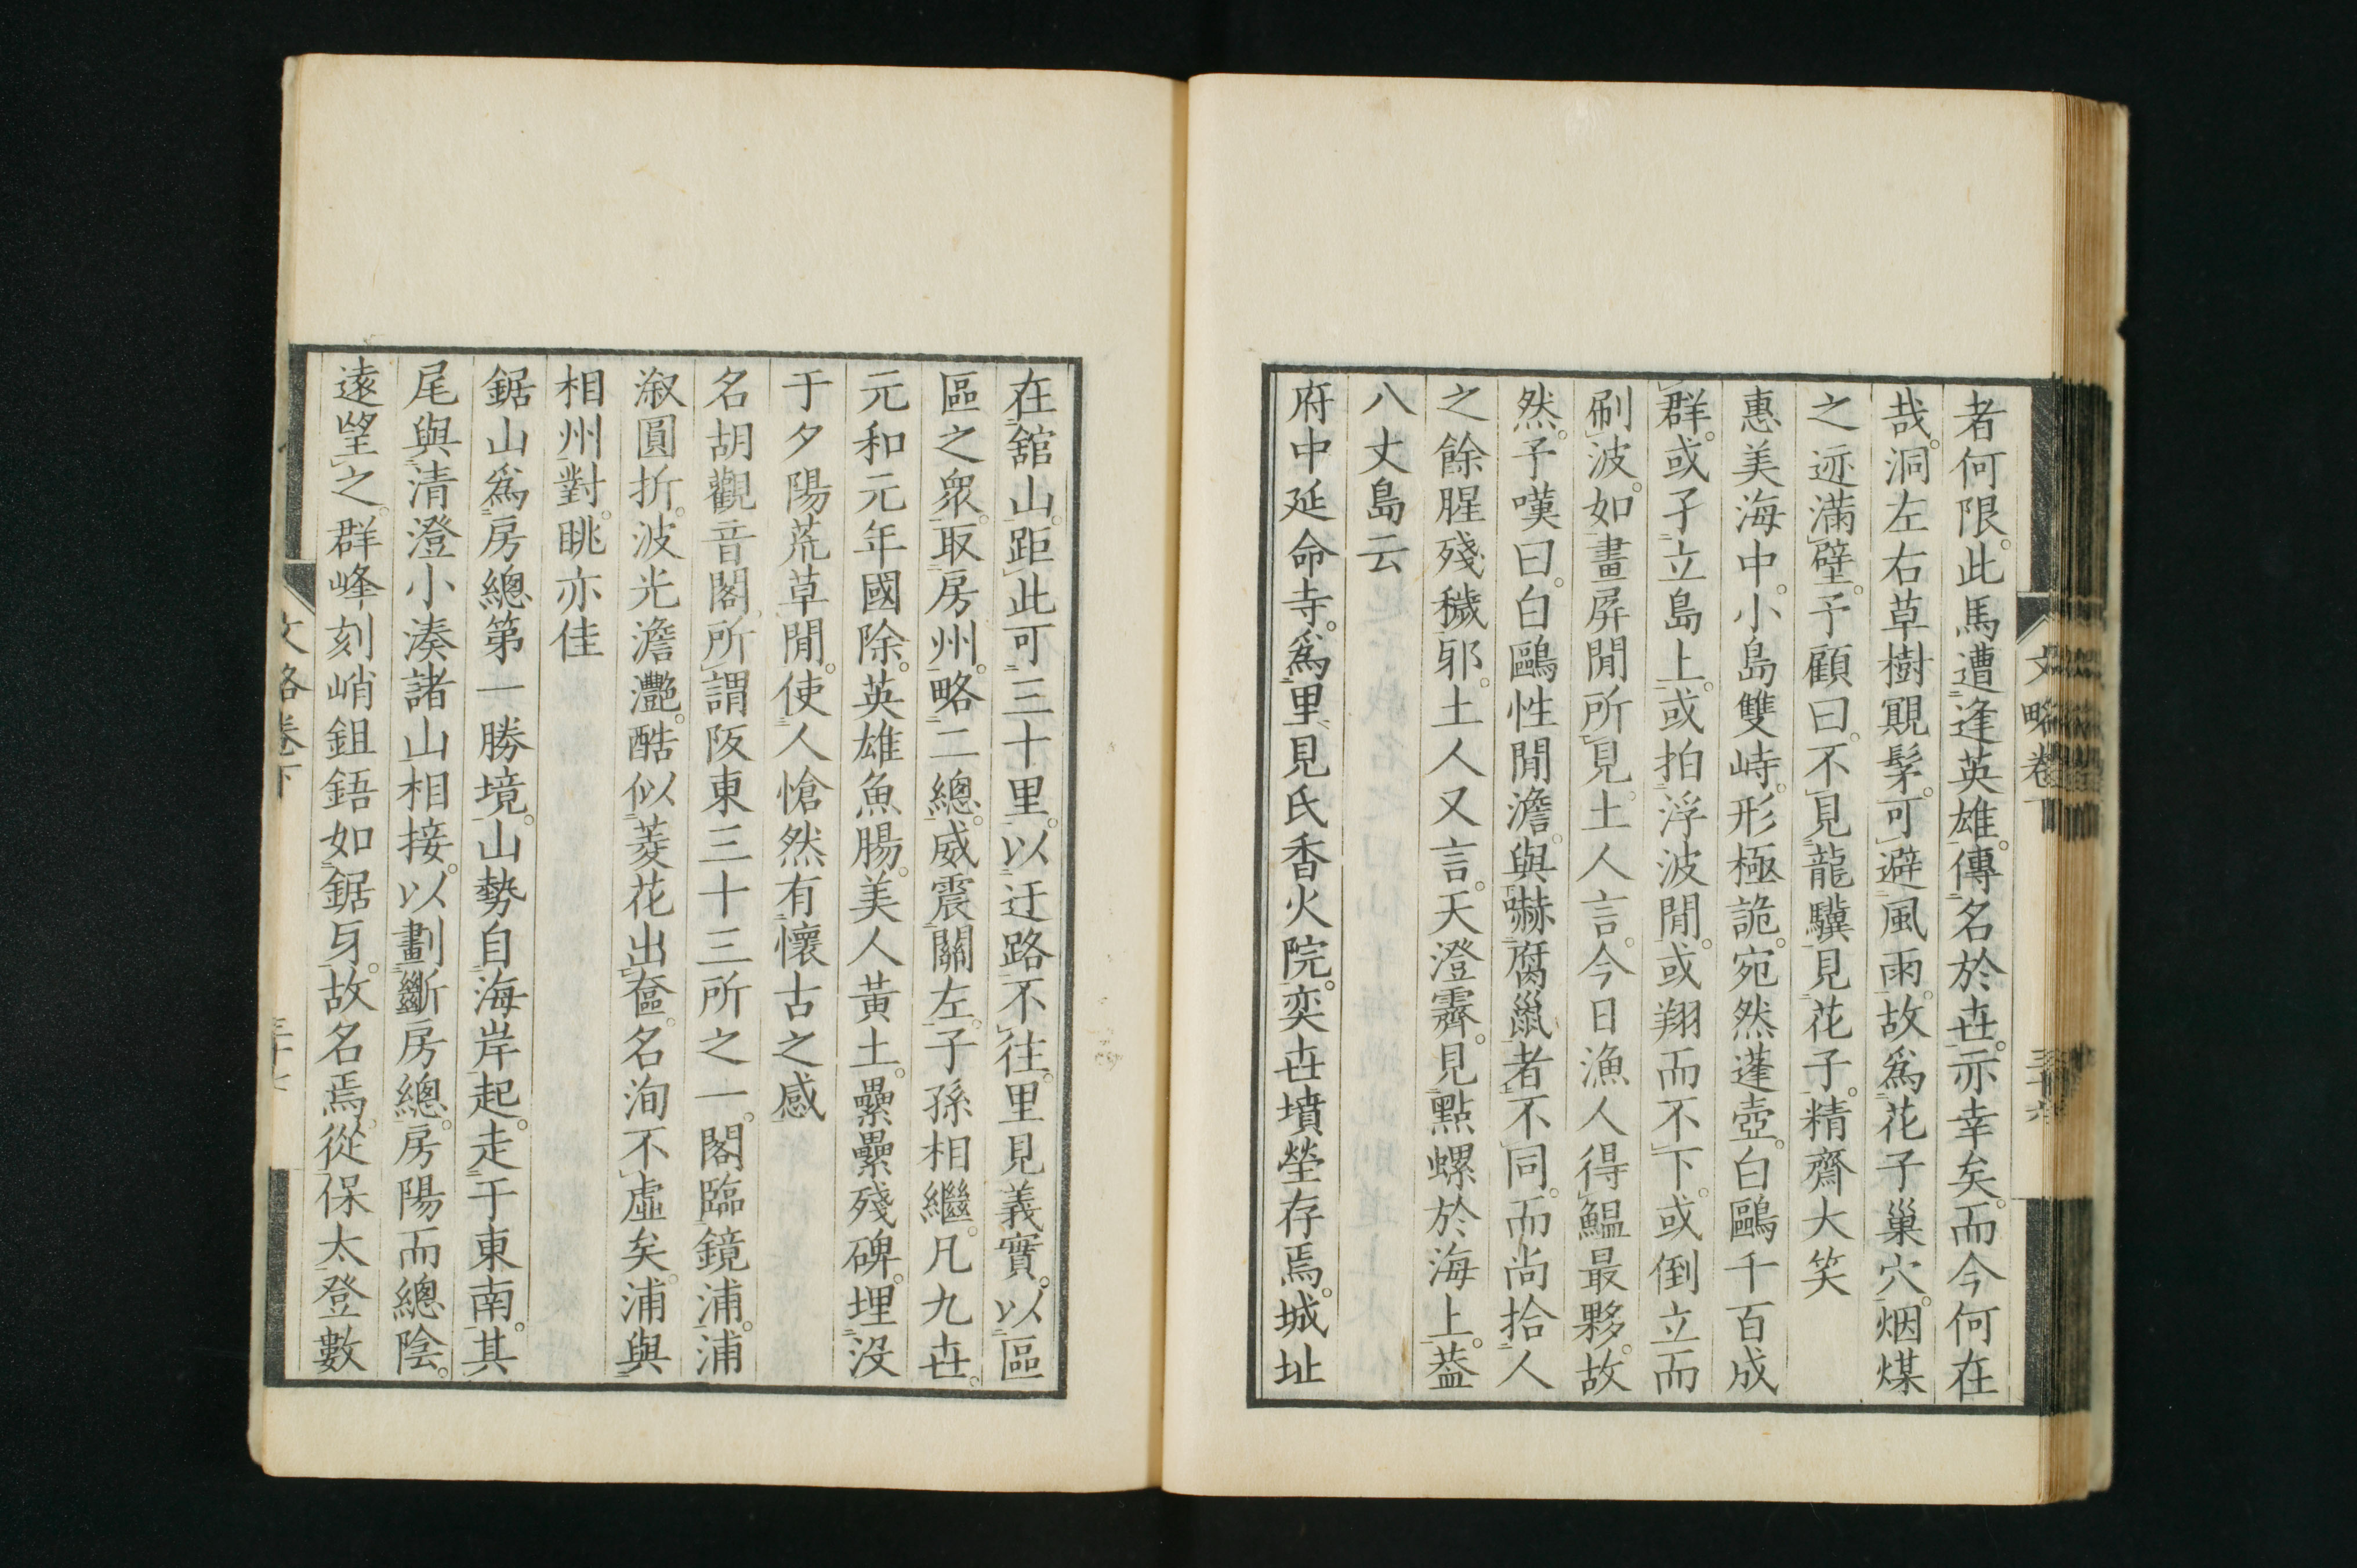 者何限。此馬遭逢英雄。傳名於世。亦幸矣。而今何在
哉。洞左右草樹覭髳。可避風雨。故爲花子巢穴。烟煤
之迹滿壁。予顧曰。不見龍驥見花子。精齋大笑
惠美海中。小島雙峙。形極詭。宛然蓬壺。白鷗千百成
群。或孑立島上。或拍浮波間。或翔而不下。或倒立而
刷波。如畫屏間所見。土人言。今日漁人得鰮最夥。故
然。予嘆曰。白鷗性閒澹。與嚇腐鼠者不同。而尚拾人
之餘腥殘穢邪。土人又言。天澄霽。見點螺於海上。蓋
八丈島云
府中延命寺。爲里見氏香火院。奕世墳塋存焉。城址
文略卷下
三十六
在舘山。距此可三十里。以迂路不往。里見義實。以區
區之衆。取房州。略二總。威震關左。子孫相繼。凡九世。
元和元年國除。英雄魚腸。美人黃土。纍纍殘碑。埋没
于夕陽荒草間。使人愴然有懷古之感
名胡觀音閣。所謂阪東三十三所之一。閣臨鏡浦。浦
漵圓折。波光澹灔。酷似菱花出奩。名洵不虛矣。浦與
相州對。眺亦佳
鋸山爲房總第一勝境。山勢自海岸起。走于東南。其
尾與清澄小湊諸山相接。以劃斷房總。房陽而總陰。
遠望之。群峰刻峭鉏鋙如鋸牙。故名焉。從保太登數
文略卷下
三十七